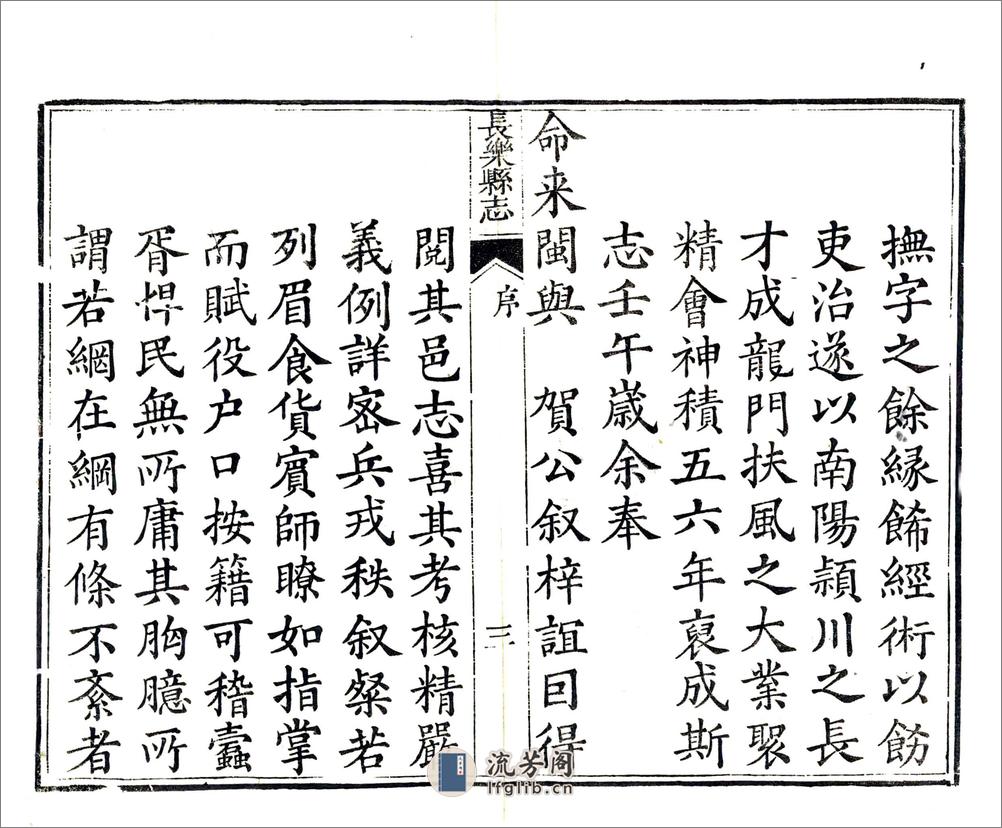 撫字之餘緣餙經術以飭
吏治遂以南陽潁川之長
才成龍門扶風之大業聚
精會神積五六年裒成斯
志壬午歲余奉
命来閩與　賀公叙梓誼囙得
長樂縣志
序
三
閱其邑志喜其考核精嚴
義例詳宻兵戎秩叙粲若
列眉食貨賓師瞭如指掌
而賦役户口按籍可稽蠹
胥悍民無所庸其胸臆所
謂若網在綱有條不紊者
流芳阁
lfglib.cn